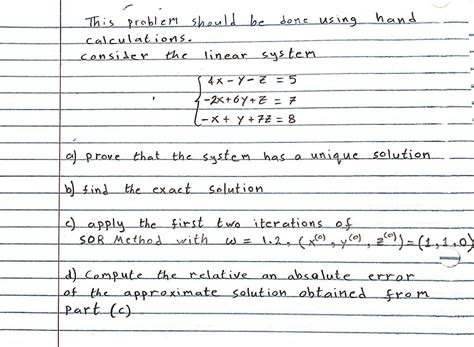 This problem should be done using hand
calculations.
consider the linear system
4x - y - z = 5
-2x+6y+z = 7
-x + y + 7z = 8
a) prove that the system has a unique solution
b) find the exact solution
c) apply the first two iterations of
SOR Method with ω = 1.2, (x^(0), y^(0), z^(0)) = (1,1,0)
d) Compute the relative an absolute error
of the approximate solution obtained from
part (c)